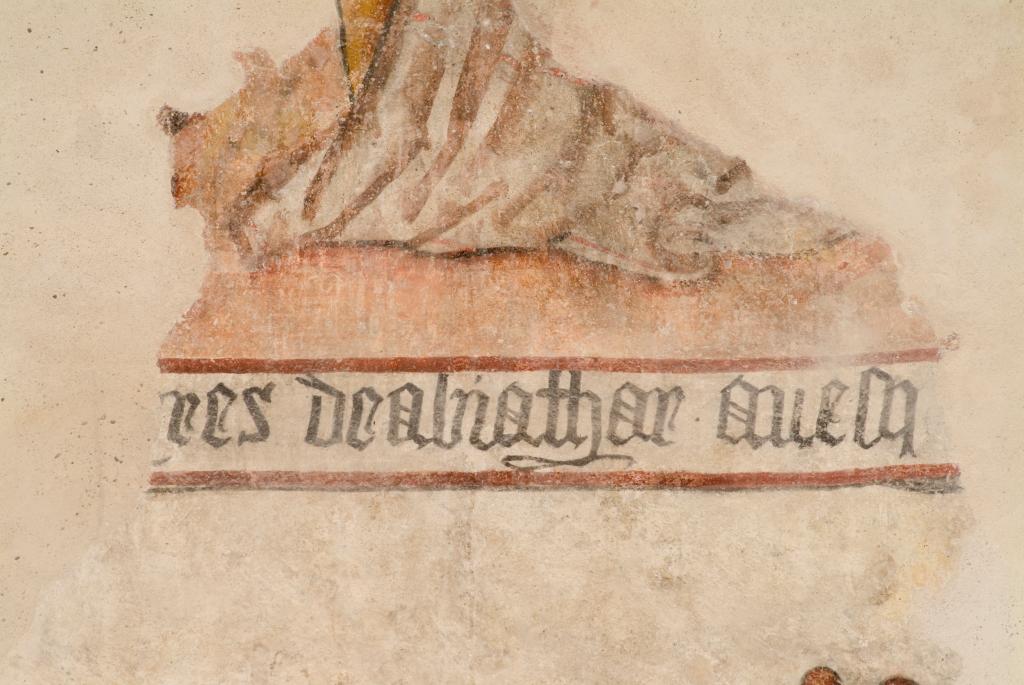 res de abiathar auesq